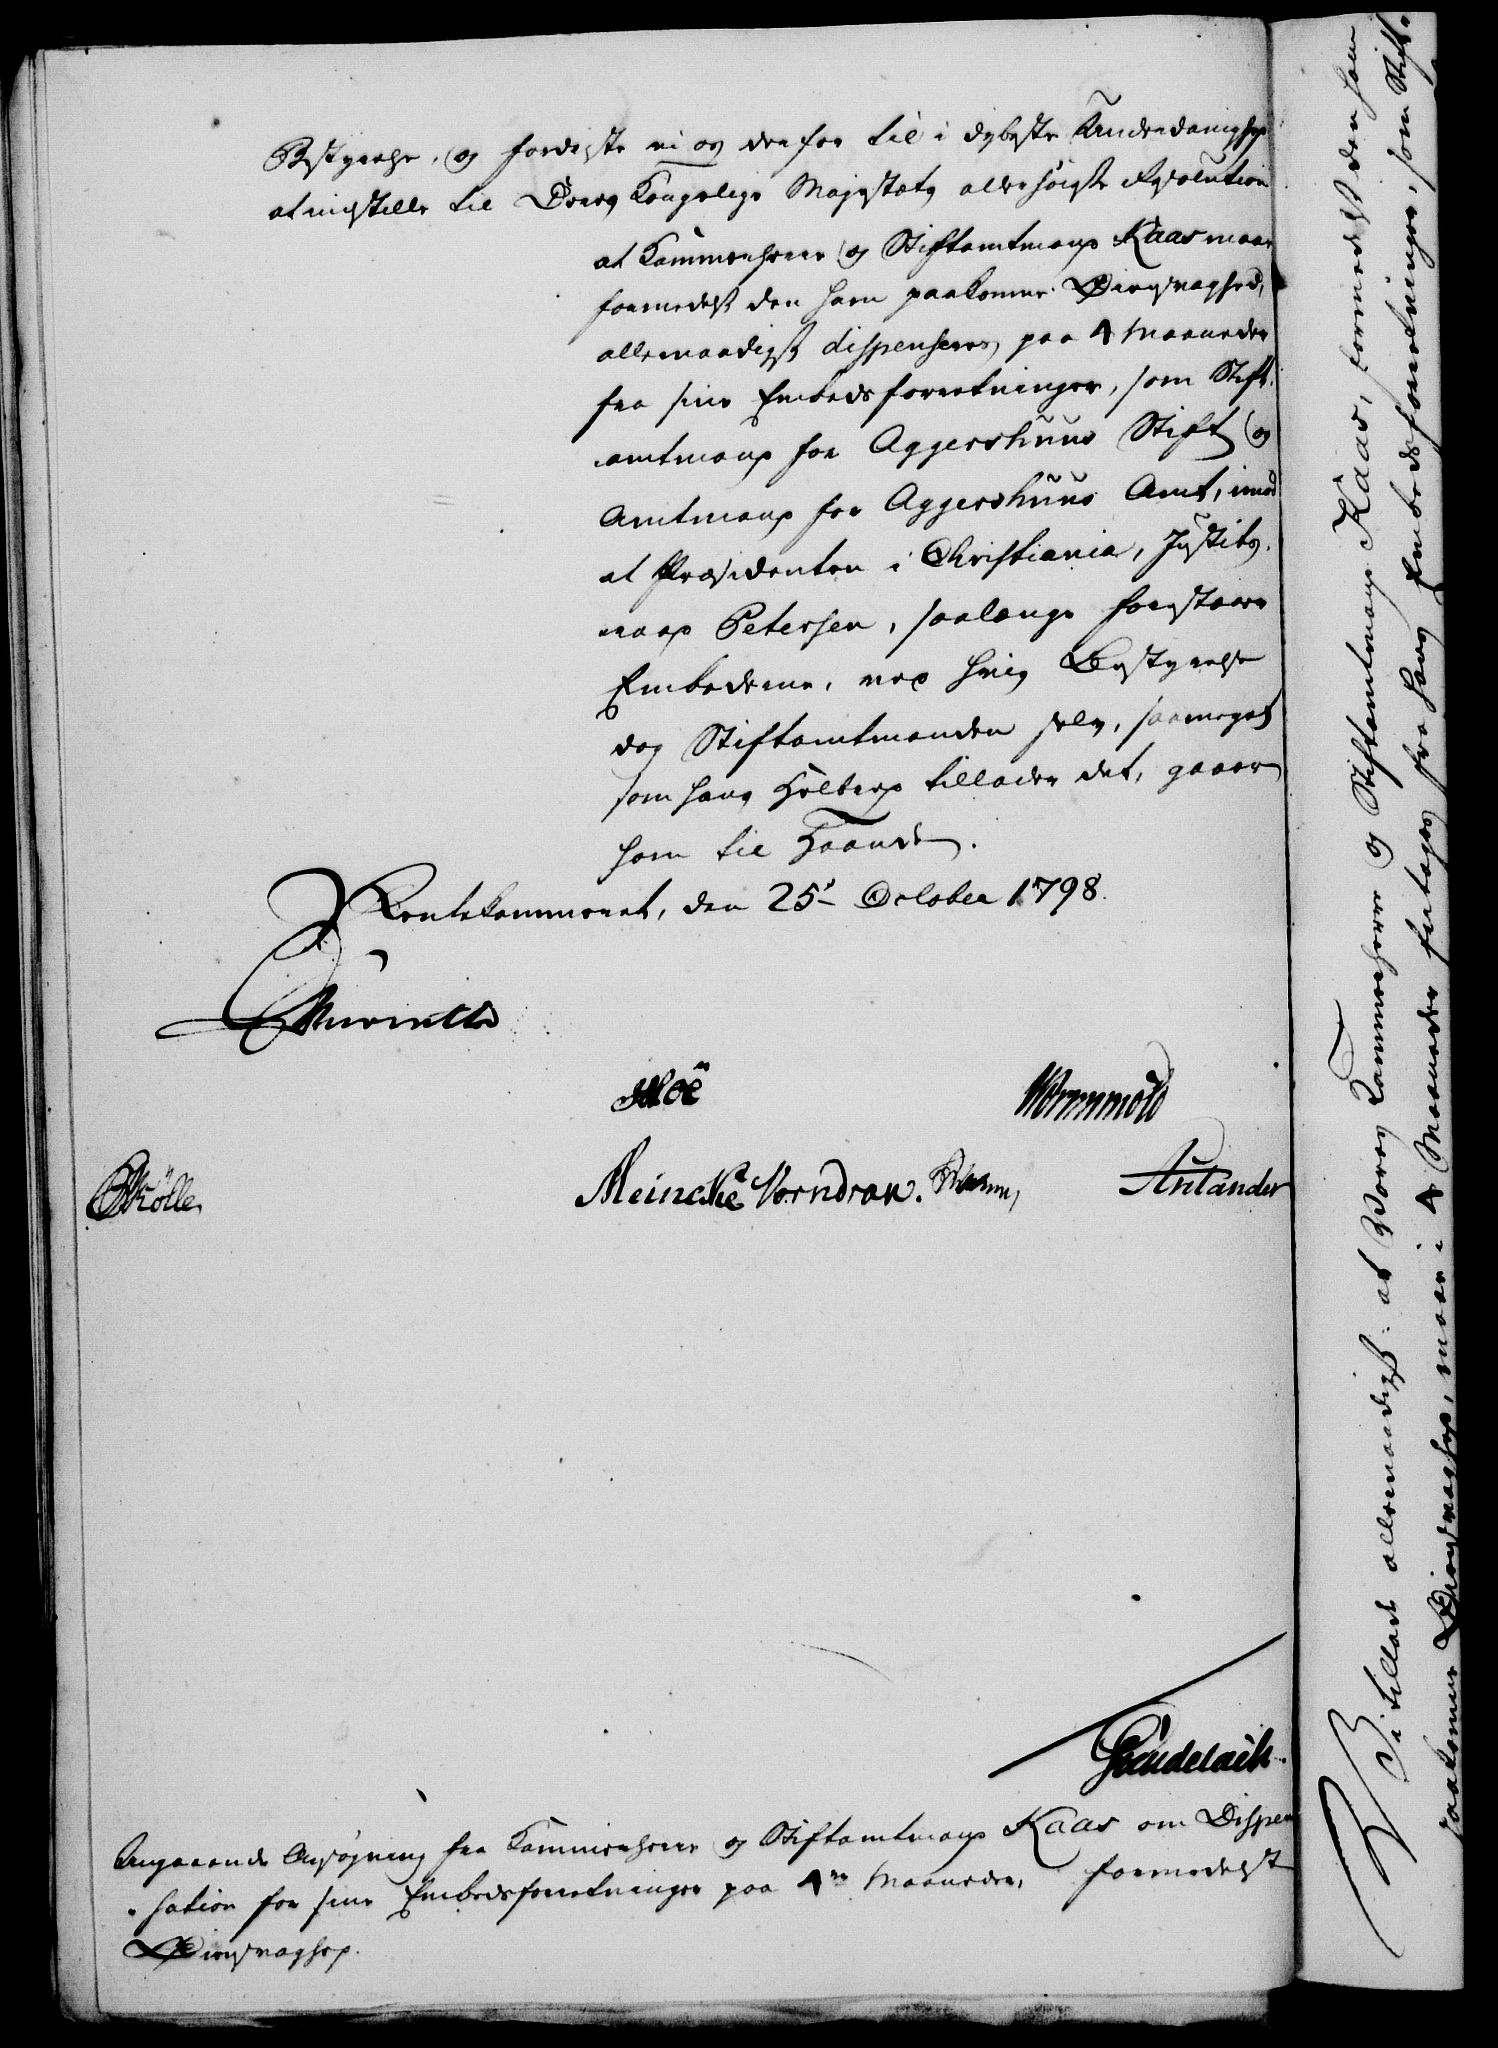 Bestyrelse, og fordriste vi os derfor til i dybeste Underdanighed
at indstille til Deres Kongelige Majestæts allerhøieste Resolution
at Kammerherre og Stiftamtmand Kaas maae
formedelst den ham paakomne Øiensvaghed,
allernaadigst dispenseres paa 4 Maaneder
fra sine Embedsforretninger, som Stift-
amtmand for Aggershuus Stift og
Amtmand for Aggershuus Amt, imod
at Præsidenten i Christiania, Justits-
raad Petersen, saalænge forestaaer
Embederne, ved hvis Bestyrelse
dog Stiftamtmanden selv, saameget
som hans Helbred tillader det, gaaer
ham til Haande.
Rentekammeret, den 25de October 1798.
Moe Wormskiold
Meincke Vorndran. Antander
Gudelach.
Angaaende Ansøgning fra Kammerherre og Stiftamtmand Kaas om Dispen-
sation for sine Embedsforretninger paa 4re Maaneder, formedelst
Øiensvaghed.
Vi tillade allernaadigst: at Vores Kammerherre og Stiftamtmand Kaas, formedelst den ham
paakomne Øiensvaghed, maae i 4 Maaneder fritages fra hans Embedsforretninger, som Stift-